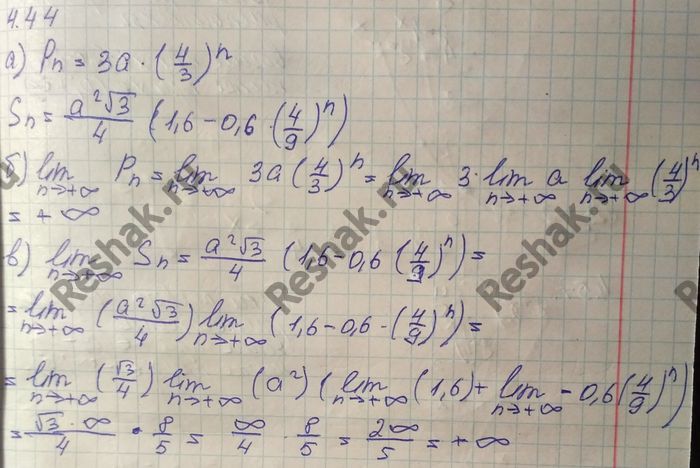 4.44
а) Pn = 3a · (4/3)^n
Sn = a²√3/4 (1,6 - 0,6 · (4/9)^n)
б) lim n→+∞ Pn = lim n→+∞ 3a (4/3)^n = lim n→+∞ 3 · lim n→+∞ a lim n→+∞ (4/3)^n
= + ∞
в) lim n→+∞ Sn = a²√3/4 (1,6 - 0,6 (4/9)^n) =
= lim n→+∞ (a²√3/4) lim n→+∞ (1,6 - 0,6 · (4/9)^n) =
= lim n→+∞ (√3/4) lim n→+∞ (a²) (lim n→+∞ (1,6) + lim n→+∞ - 0,6 (4/9)^n)
= √3 · ∞/4 · 8/5 = ∞/4 · 8/5 = 2∞/5 = + ∞
Reshak.ru
Reshak.ru
Reshak.ru